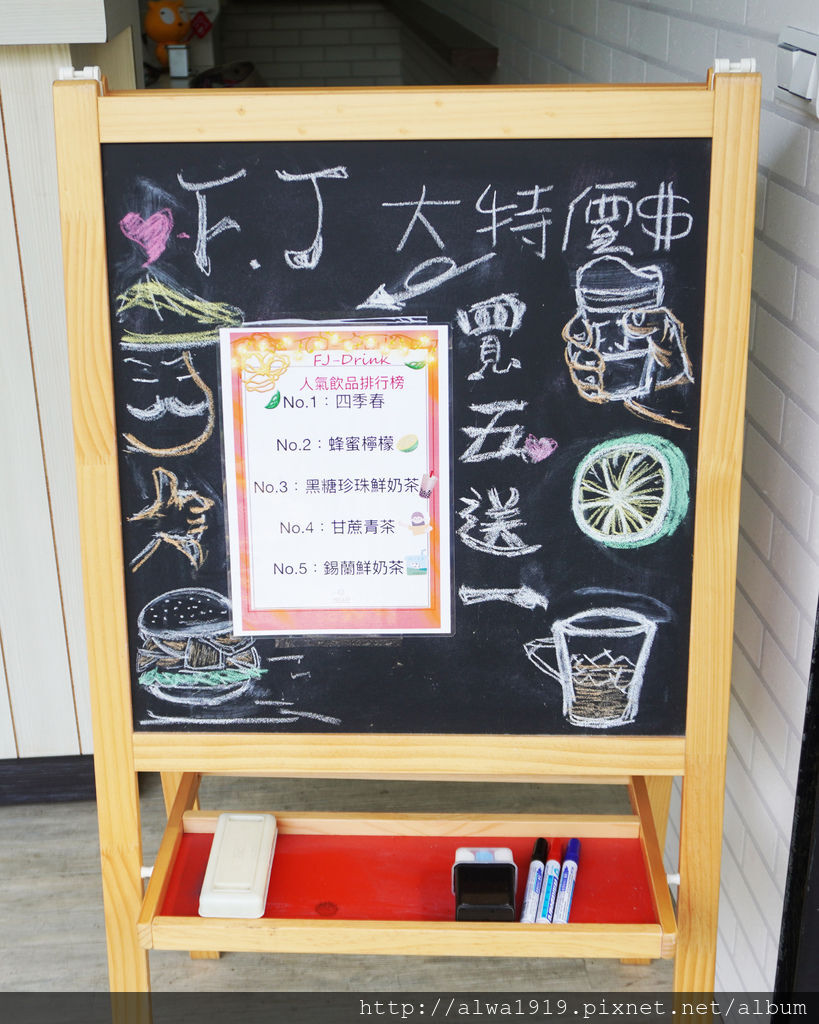 F.J 大特價$
買五送一
FJ-Drink
人氣飲品排行榜
No.1：四季春
No.2：蜂蜜檸檬
No.3：黑糖珍珠鮮奶茶
No.4：甘蔗青茶
No.5：錫蘭鮮奶茶
http://alwa1919.pixnet.net/album